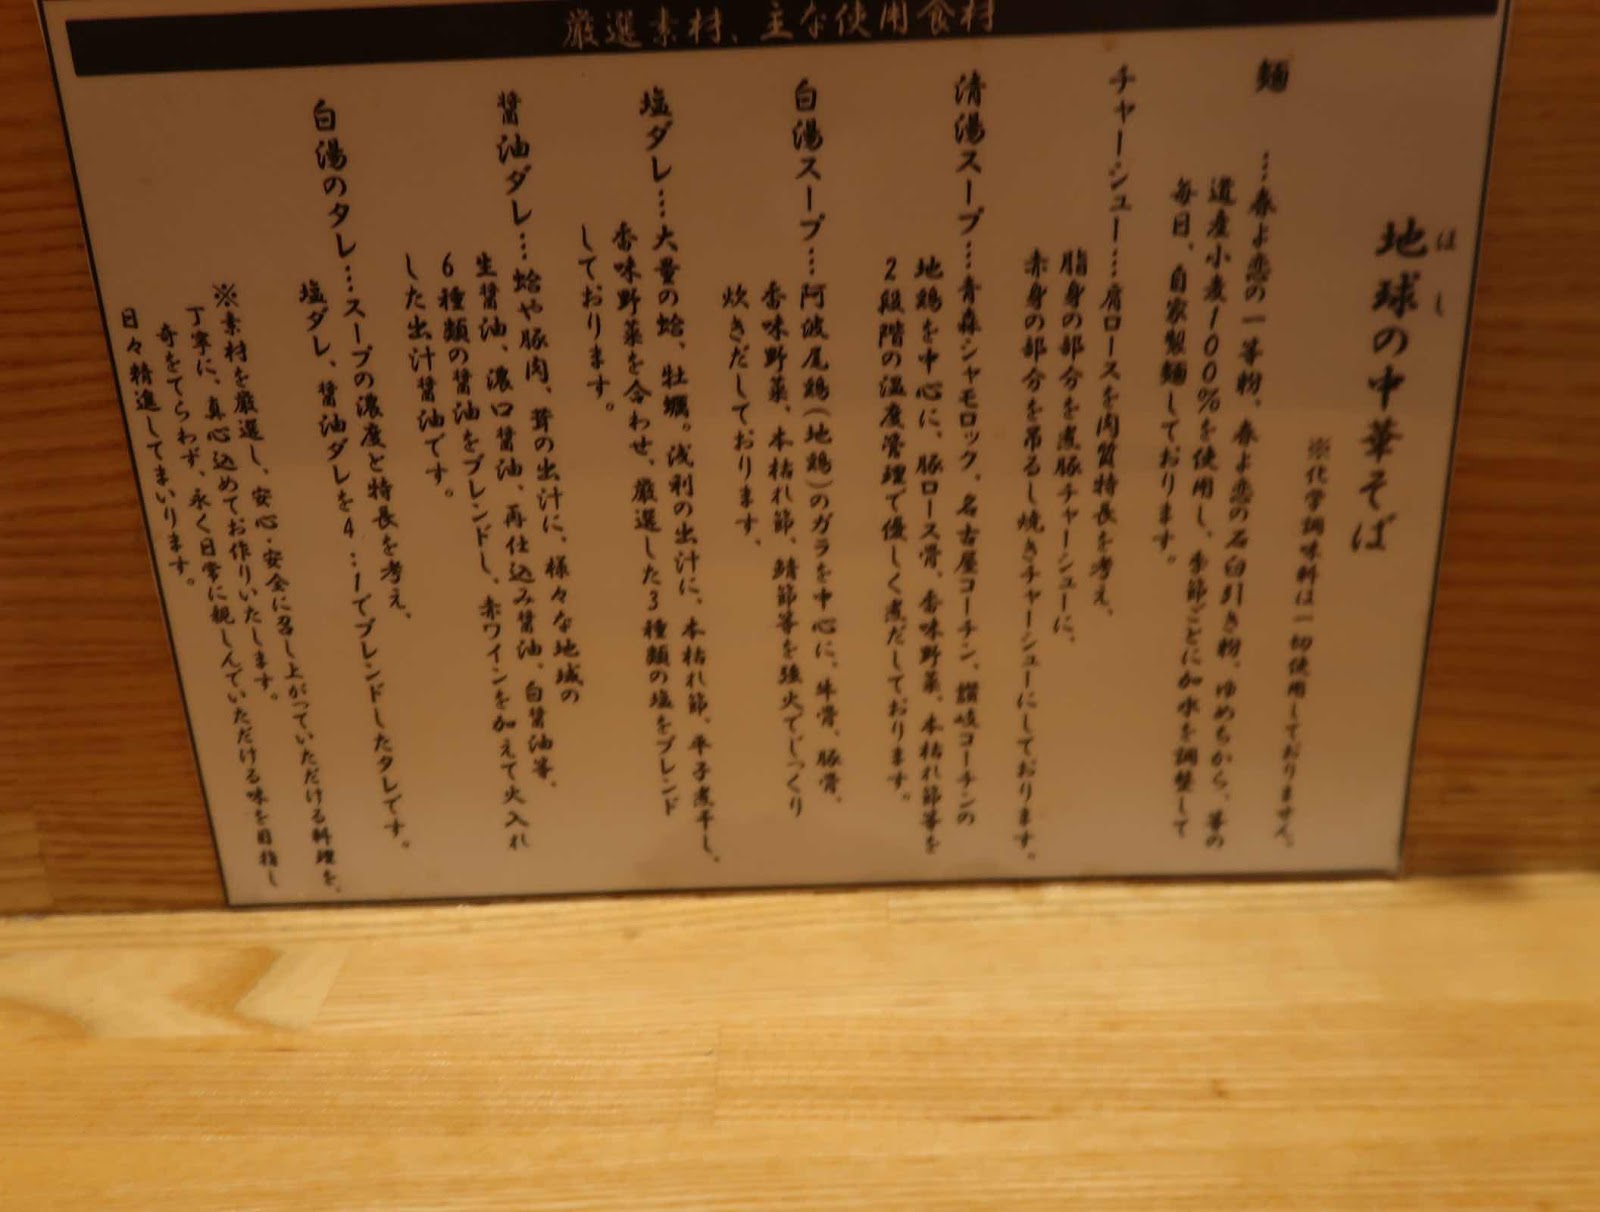 厳選素材、主な使用食材
はし
地球の中華そば
※化学調味料は一切使用しておりません。
麺 …春よ恋の一等粉、春よ恋の石臼引き粉、ゆめちから、等の
道産小麦100%を使用し、季節ごとに加水を調整して
毎日、自家製麺しております。
チャーシュー…肩ロースを肉質特長を考え、
脂身の部分を煮豚チャーシューに、
赤身の部分を吊るし焼きチャーシューにしております。
清湯スープ…青森シャモロック、名古屋コーチン、讃岐コーチンの
地鶏を中心に、豚ロース骨、香味野菜、本枯れ節等を
2段階の温度管理で優しく煮だしております。
白湯スープ…阿波尾鶏(地鶏)のガラを中心に、牛骨、豚骨、
香味野菜、本枯れ節、鯖節等を強火でじっくり
炊きだしております、
塩ダレ…大量の蛤、牡蠣。浅利の出汁に、本枯れ節、平子煮干し、
香味野菜を合わせ、厳選した3種類の塩をブレンド
しております。
醤油ダレ…蛤や豚肉、茸の出汁に、様々な地域の
生醤油、濃口醤油、再仕込み醤油、白醤油等、
6種類の醤油をブレンドし、赤ワインを加えて火入れ
した出汁醤油です。
白湯のタレ…スープの濃度と特長を考え、
塩ダレ、醤油ダレを4:1でブレンドしたタレです。
※素材を厳選し、安心・安全に召し上がっていただける料理を、
丁寧に、真心込めてお作りいたします。
奇をてらわず、永く日常に親しんでいただける味を目指し
日々精進してまいります。